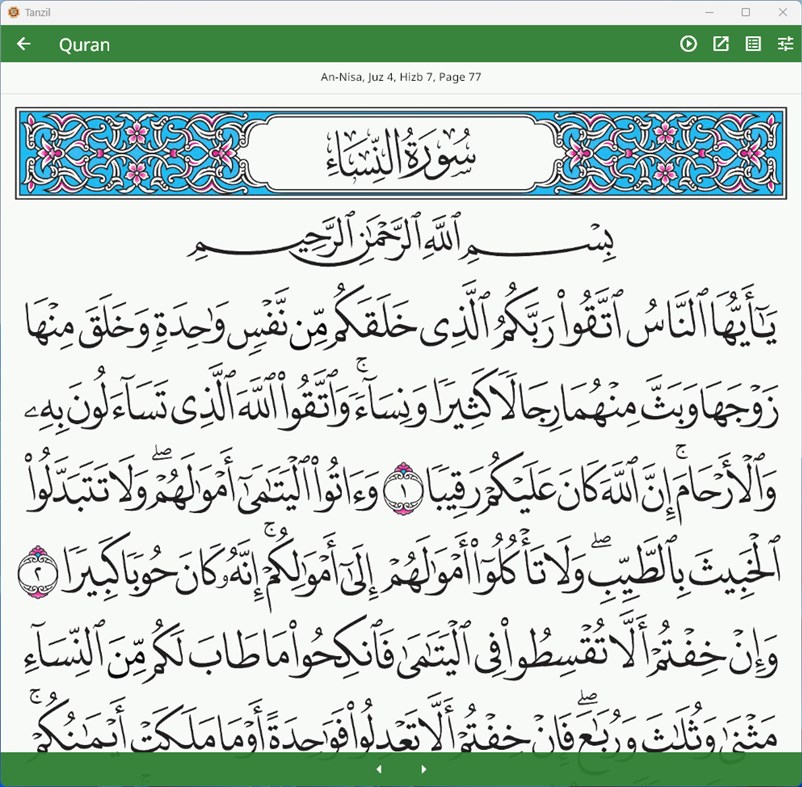 Tanzil
Quran
An-Nisa, Juz 4, Hizb 7, Page 77
سُورَةُ النِّسَاءِ
بِسْمِ ٱللَّهِ ٱلرَّحْمَٰنِ ٱلرَّحِيمِ
يَٰٓأَيُّهَا ٱلنَّاسُ ٱتَّقُوا۟ رَبَّكُمُ ٱلَّذِى خَلَقَكُم مِّن نَّفْسٍ وَٰحِدَةٍ وَخَلَقَ مِنْهَا
زَوْجَهَا وَبَثَّ مِنْهُمَا رِجَالًا كَثِيرًا وَنِسَآءً ۚ وَٱتَّقُوا۟ ٱللَّهَ ٱلَّذِى تَسَآءَلُونَ بِهِۦ
وَٱلْأَرْحَامَ ۚ إِنَّ ٱللَّهَ كَانَ عَلَيْكُمْ رَقِيبًا ١ وَءَاتُوا۟ ٱلْيَتَٰمَىٰٓ أَمْوَٰلَهُمْ ۖ وَلَا تَتَبَدَّلُوا۟
ٱلْخَبِيثَ بِٱلطَّيِّبِ ۖ وَلَا تَأْكُلُوٓا۟ أَمْوَٰلَهُمْ إِلَىٰٓ أَمْوَٰلِكُمْ ۚ إِنَّهُۥ كَانَ حُوبًا كَبِيرًا ٢
وَإِنْ خِفْتُمْ أَلَّا تُقْسِطُوا۟ فِى ٱلْيَتَٰمَىٰ فَٱنكِحُوا۟ مَا طَابَ لَكُم مِّنَ ٱلنِّسَآءِ
مَثْنَىٰ وَثُلَٰثَ وَرُبَٰعَ ۖ فَإِنْ خِفْتُمْ أَلَّا تَعْدِلُوا۟ فَوَٰحِدَةً أَوْ مَا مَلَكَتْ أَيْمَٰنُكُمْ ۚ